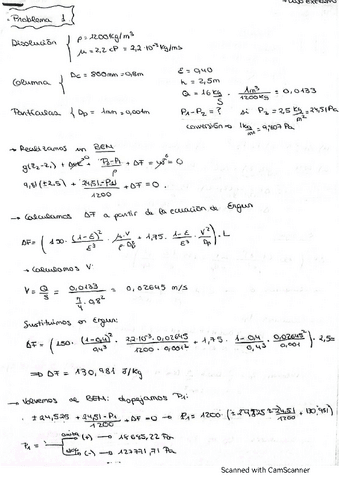 Problema 1
Disolución { ρ = 1200 kg/m³
μ = 2,2 cP = 2,2·10⁻³ kg/ms
Columna { Dc = 800mm = 0,8m
h = 2,5m
Partículas { Dp = 1mm = 0,001m
ε = 0,40
Q = 16 kg/s · 1m³/1200kg = 0,0133
P₁-P₂ = ? si P₂ = 2,5 kg/m² = 24,51 Pa
conversión → 1 kg/m² = 9,807 Pa
→ Realizamos un BEM
g(z₂-z₁) + + P₂-P₁/ρ + ΔF = 0
9,81 (±2,5) + 24,51-P₁/1200 + ΔF = 0.
→ Calculamos ΔF a partir de la ecuación de Ergun
ΔF = (150 · (1-ε)²/ε³ · μ·V/ρ·Dp² + 1,75 · 1-ε/ε³ · V²/Dp) · L
→ Calculamos V:
V = Q/S = 0,0133/(π/4 · 0,8²) = 0,02645 m/s
Sustituimos en Ergun:
ΔF = (150 · (1-0,4)²/0,4³ · 2,2·10⁻³ · 0,02645/1200 · 0,001² + 1,75 · 1-0,4/0,4³ · 0,02645²/0,001) · 2,5
⇒ ΔF = 130,981 J/kg
→ Volvemos de BEM: despejamos P₁:
± 24,525 + 24,51-P₁/1200 + ΔF = 0 → P₁ = 1200 · (± 24,525 + 24,51/1200 + 130,981)
P₁ = (+) → Pa
(-) → 127771,71 Pa
Scanned with CamScanner